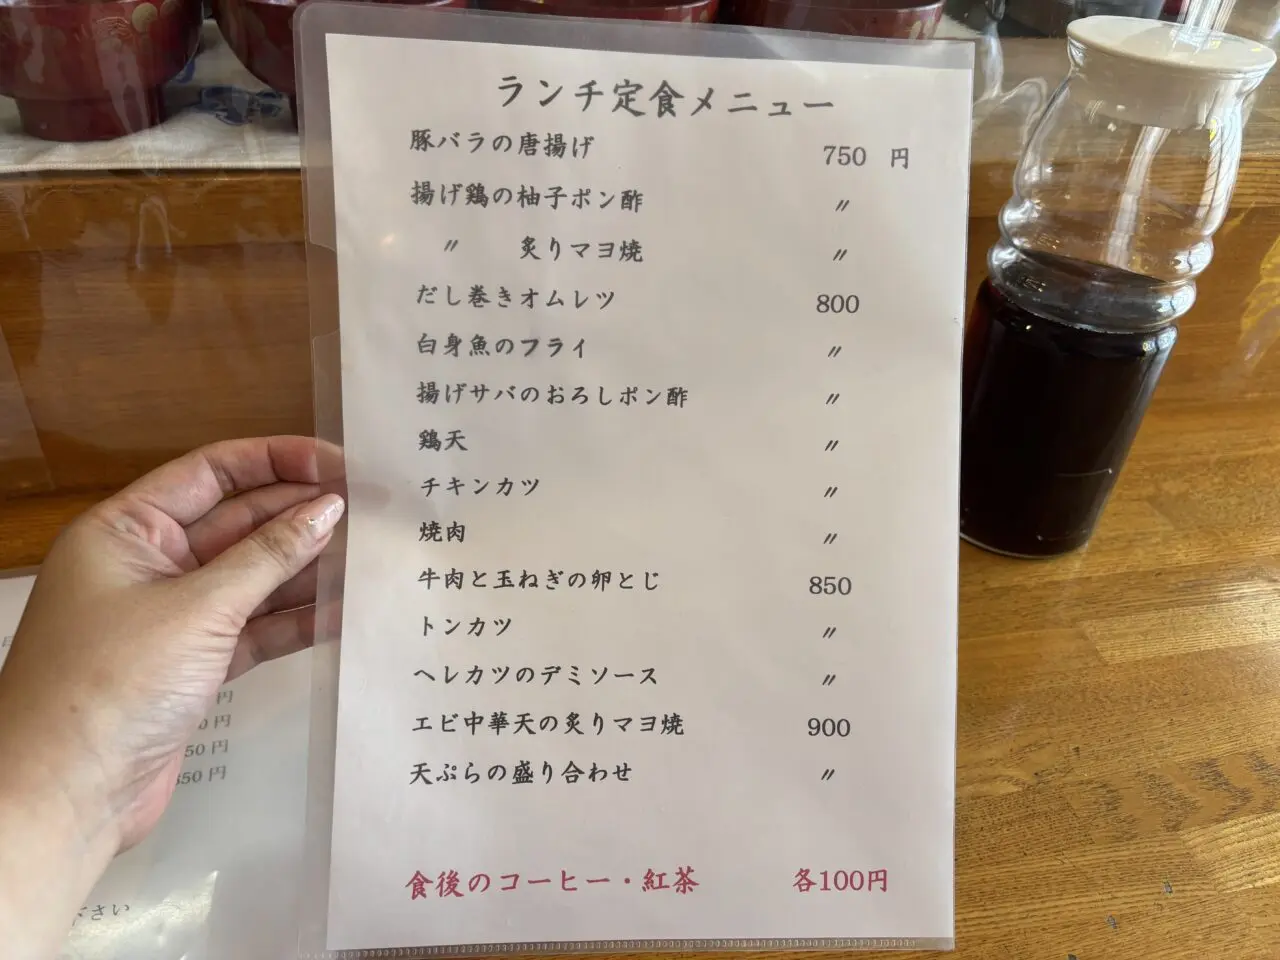 ランチ定食メニュー
豚バラの唐揚げ 750 円
揚げ鶏の柚子ポン酢 〃
〃 炙りマヨ焼 〃
だし巻きオムレツ 800
白身魚のフライ 〃
揚げサバのおろしポン酢 〃
鶏天 〃
チキンカツ 〃
焼肉 〃
牛肉と玉ねぎの卵とじ 850
トンカツ 〃
ヘレカツのデミソース 〃
エビ中華天の炙りマヨ焼 900
天ぷらの盛り合わせ 〃
食後のコーヒー・紅茶 各100円
円
0 円
50 円
350 円
下さい